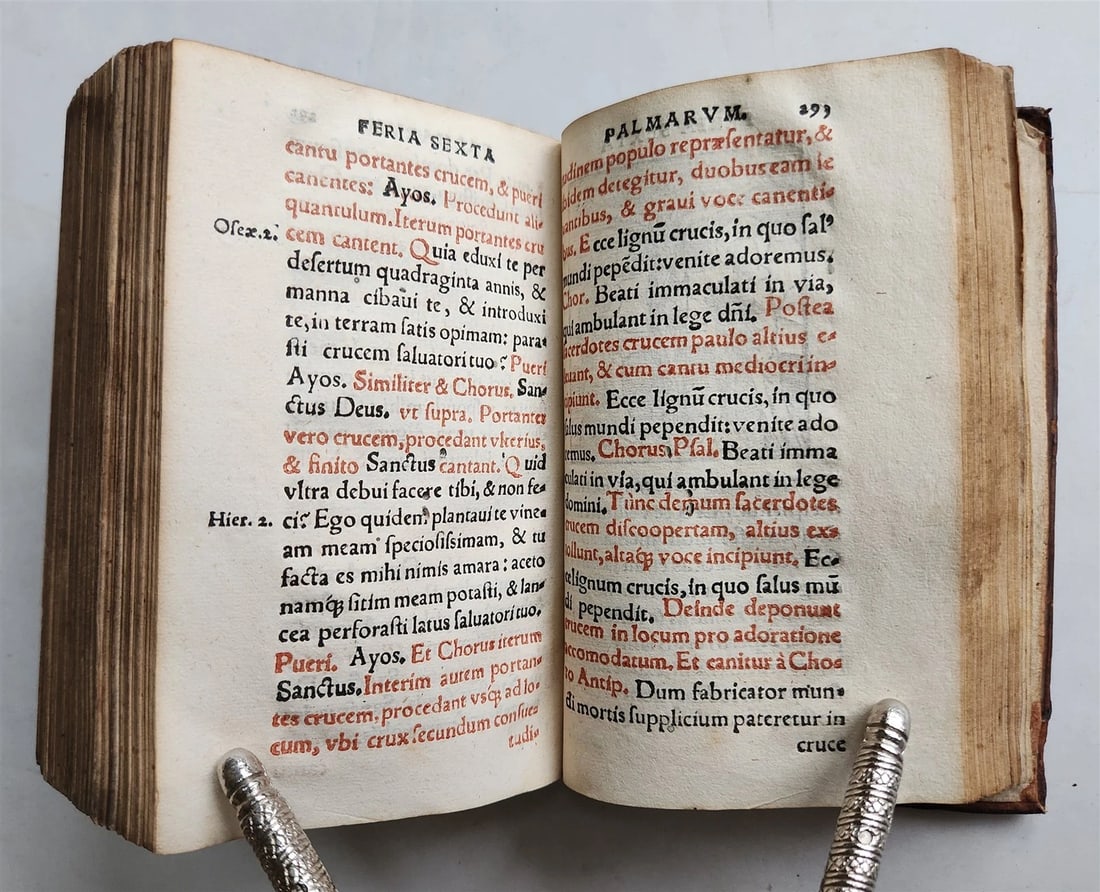 FERIA SEXTA
cantu portantes crucem, & pueri
canentes: Ayos. Procedunt ali-
quantulum. Iterum portantes cru
Oseæ.2. cem cantent. Quia eduxi te per
desertum quadraginta annis, &
manna cibaui te, & introduxi
te, in terram satis opimam: para-
sti crucem saluatori tuo? Pueri
Ayos. Similiter & Chorus. San-
ctus Deus. vt supra. Portantes
vero crucem, procedant vlterius,
& finito Sanctus cantant. Quid
vltra debui facere tibi, & non fe-
Hier. 2. ci? Ego quidem plantaui te vine-
am meam speciosissimam, & tu
facta es mihi nimis amara: aceto
namq́ sitim meam potasti, & lan-
cea perforasti latus saluatori tuo.
Pueri. Ayos. Et Chorus iterum
Sanctus. Interim autem portan-
tes crucem, procedant vsq́ ad lo-
cum, vbi crux secundum consue-
tudi-
PALMARVM. 293
udinem populo repræsentatur, &
ibidem detegitur, duobus eam le
uantibus, & graui voce canenti-
bus. Ecce lignū crucis, in quo sal⁹
mundi pepēdit: venite adoremus.
Chor. Beati immaculati in via,
qui ambulant in lege dñi. Postea
sacerdotes crucem paulo altius e-
leuant, & cum cantu mediocri in-
cipiunt. Ecce lignū crucis, in quo
salus mundi pependit: venite ado
remus. Chorus, Psal. Beati imma
culati in via, qui ambulant in lege
domini. Tunc demum sacerdotes
crucem discoopertam, altius ex-
tollunt, altaq́ voce incipiunt. Ec-
ce lignum crucis, in quo salus mū
di pependit. Deinde deponunt
crucem in locum pro adoratione
accomodatum. Et canitur à Cho-
ro Antip. Dum fabricator mun-
di mortis supplicium pateretur in
cruce